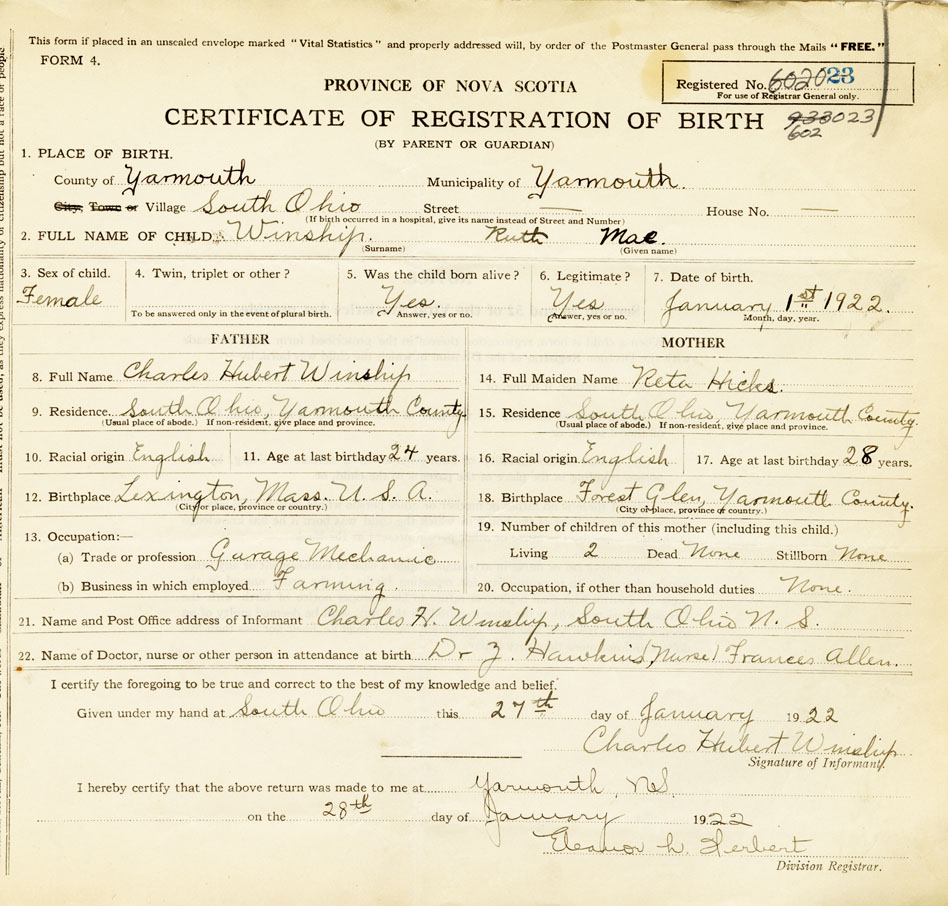 This form if placed in an unsealed envelope marked "Vital Statistics" and properly addressed will, by order of the Postmaster General pass through the Mails "FREE."
FORM 4.
PROVINCE OF NOVA SCOTIA
Registered No. 602023
For use of Registrar General only.
CERTIFICATE OF REGISTRATION OF BIRTH
933023
602
(BY PARENT OR GUARDIAN)
1. PLACE OF BIRTH.
County of Yarmouth Municipality of Yarmouth.
City, Town or Village South Ohio Street — House No. —
(If birth occurred in a hospital, give its name instead of Street and Number)
2. FULL NAME OF CHILD Winship. Ruth Mae.
(Surname) (Given name)
3. Sex of child. 4. Twin, triplet or other? 5. Was the child born alive? 6. Legitimate? 7. Date of birth.
Female Yes. Yes January 1st 1922.
To be answered only in the event of plural birth. Answer, yes or no. Answer, yes or no. Month, day, year.
FATHER MOTHER
8. Full Name Charles Hubert Winship 14. Full Maiden Name Reta Hicks.
9. Residence. South Ohio, Yarmouth County 15. Residence South Ohio Yarmouth County.
(Usual place of abode.) If non-resident, give place and province. (Usual place of abode.) If non-resident, give place and province.
10. Racial origin English 11. Age at last birthday 24 years. 16. Racial origin English 17. Age at last birthday 28 years.
12. Birthplace Lexington, Mass. U. S. A. 18. Birthplace Forest Glen, Yarmouth County.
(City or place, province or country.) (City or place, province or country.)
13. Occupation:— 19. Number of children of this mother (including this child.)
(a) Trade or profession Garage Mechanic Living 2 Dead None Stillborn None
(b) Business in which employed Farming. 20. Occupation, if other than household duties None.
21. Name and Post Office address of Informant Charles H. Winship, South Ohio N. S.
22. Name of Doctor, nurse or other person in attendance at birth Dr Z. Hawkins (Nurse) Frances Allen.
I certify the foregoing to be true and correct to the best of my knowledge and belief.
Given under my hand at South Ohio this 27th day of January 1922
Charles Hubert Winship
Signature of Informant.
I hereby certify that the above return was made to me at Yarmouth, N.S.
on the 28th day of January 1922
Eleanor W. Herbert
Division Registrar.